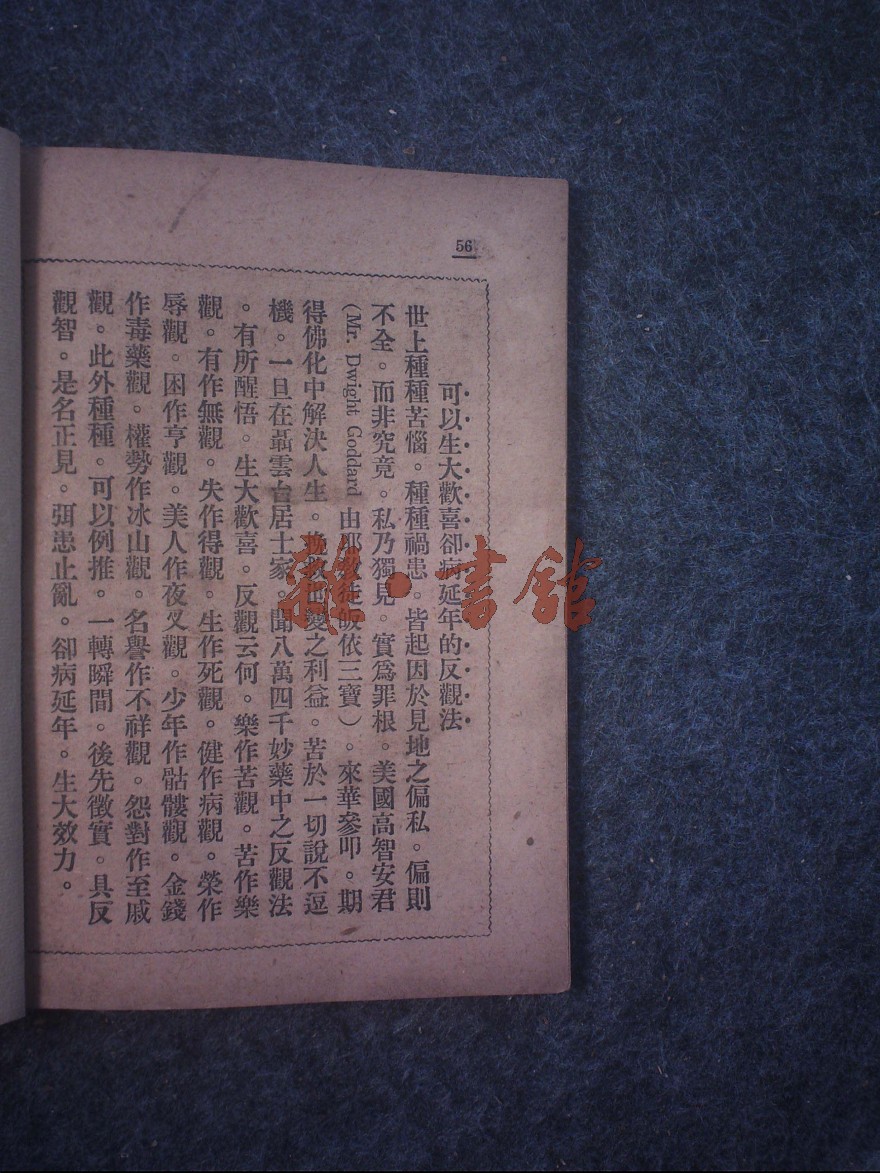 56
可以生大歡喜卻病延年的反觀法
世上種種苦惱。種種禍患。皆起因於見地之偏私。偏則
不全。而非究竟。私乃獨見。實爲罪根。美國高智安君
(Mr. Dwight Goddard 由耶教徒皈依三寶)。來華參叩。期
得佛化中解決人生。挽救世變之利益。苦於一切說不逗
機。一旦在聶雲台居士家。聞八萬四千妙藥中之反觀法
。有所醒悟。生大歡喜。反觀云何。樂作苦觀。苦作樂
觀。有作無觀。失作得觀。生作死觀。健作病觀。榮作
辱觀。困作亨觀。美人作夜叉觀。少年作骷髏觀。金錢
作毒藥觀。權勢作冰山觀。名譽作不祥觀。怨對作至戚
觀。此外種種。可以例推。一轉瞬間。後先徵實。具反
觀智。是名正見。弭患止亂。卻病延年。生大效力。
雜·書館